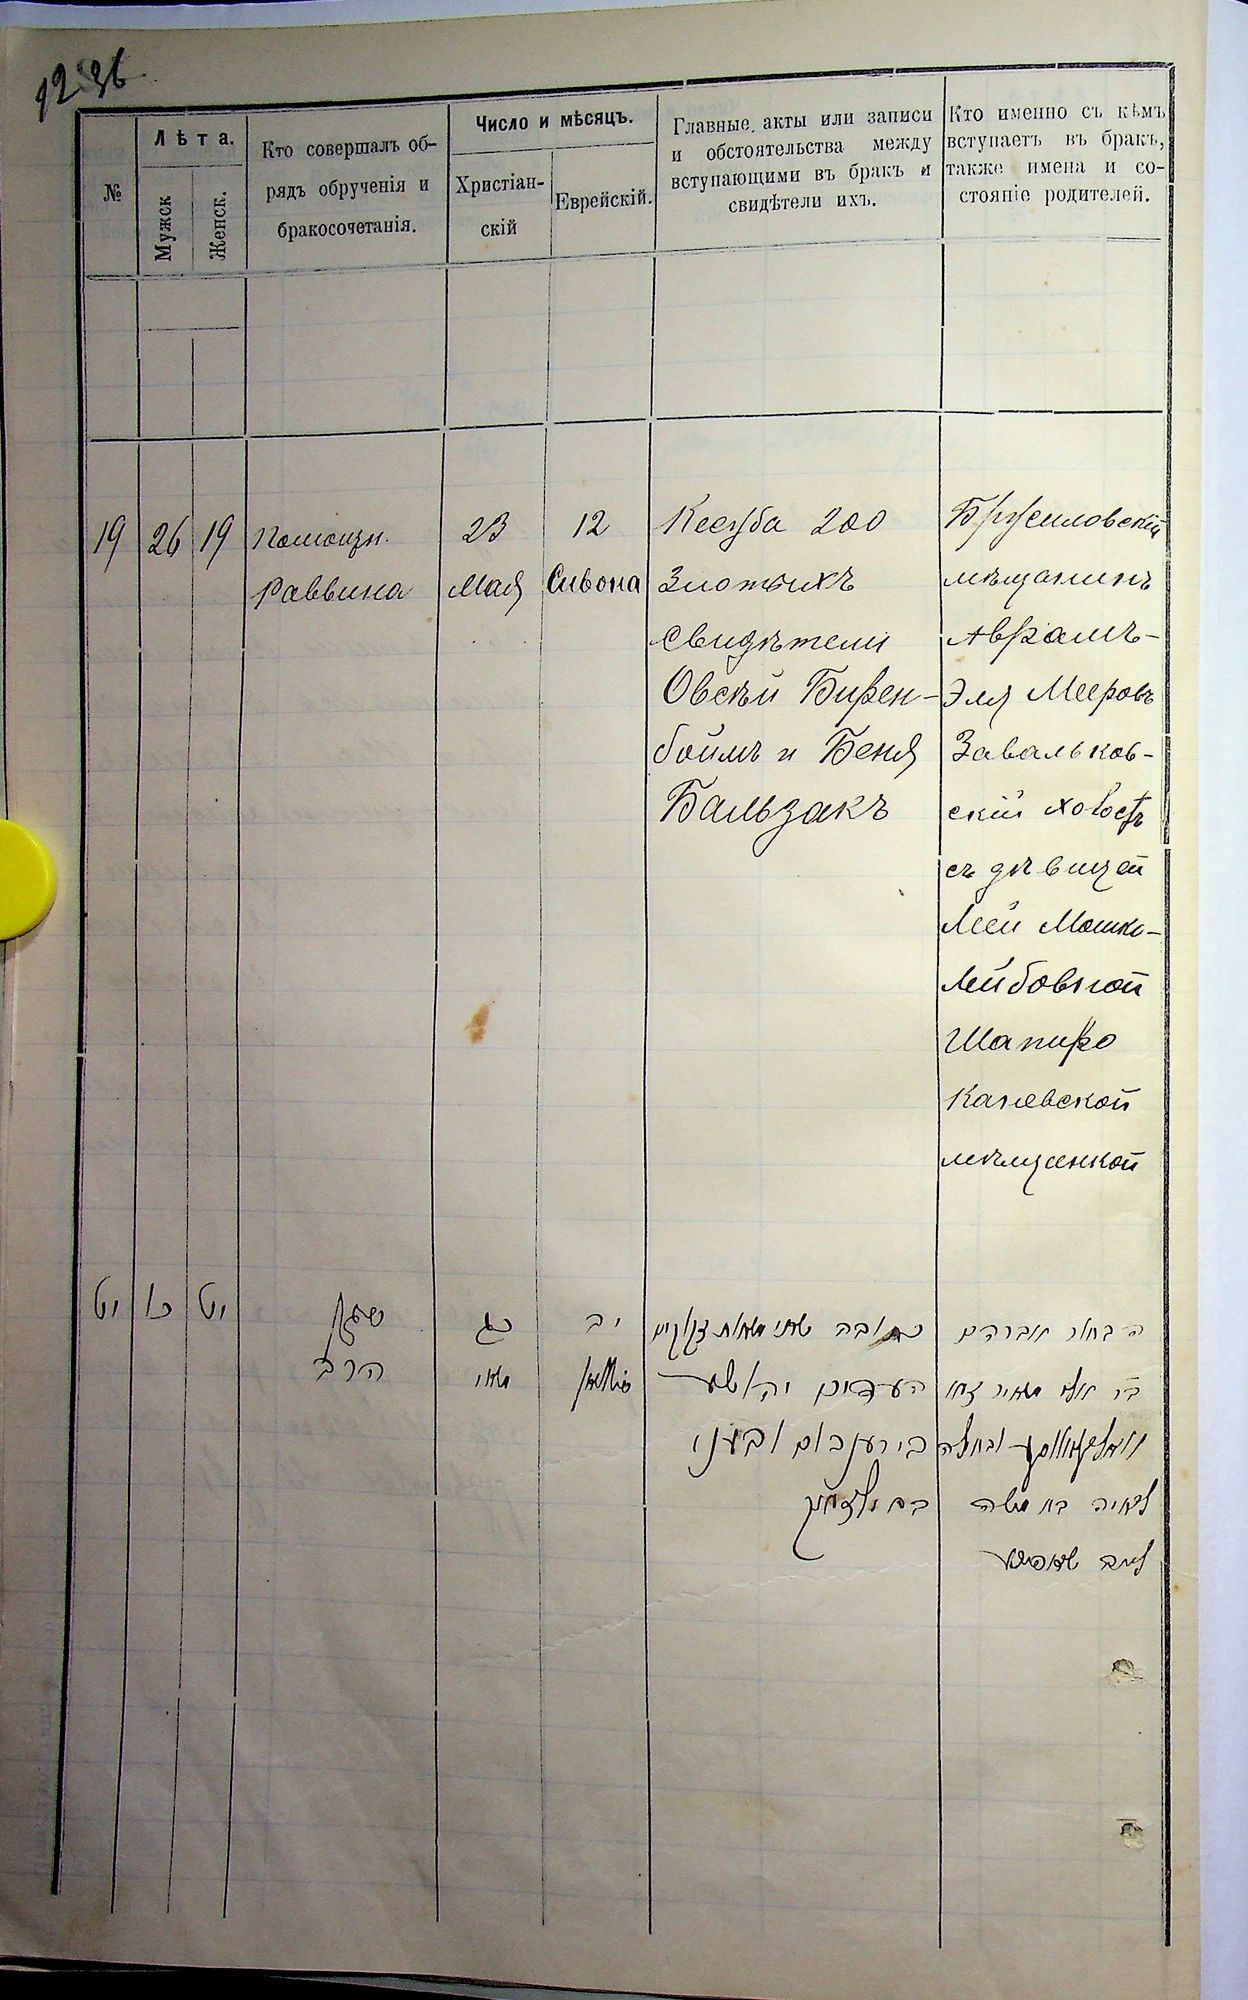 1236
№
Лѣта.
Мужск
Женск.
Кто совершалъ об-
рядъ обрученія и
бракосочетанія.
Число и мѣсяцъ.
Христіан-
скій
Еврейскій.
Главные акты или записи
и обстоятельства между
вступающими въ бракъ и
свидѣтели ихъ.
Кто именно съ кѣмъ
вступаетъ въ бракъ,
также имена и со-
стояніе родителей.
19
26
19
Помощн.
Раввина
23
Мая
12
Сивона
Кесуба 200
Злотыхъ
Свидѣтели
Овсѣй Бирен-
боймъ и Беня
Бальзакъ
Брусиловскій
мѣщанинъ
Аврамъ-
Эля Мееровъ
Завальков-
скій холостъ
съ дѣвицей
Леей Мошко-
Лейбовной
Шапиро
Каневской
мѣщанкой
יט
כו
יט
הרב
כג
מאי
יב
כתובה מאתי זקוקים
העדים יהושע
בירענבוים ובעני
באלזאק
הבחור אברהם
לאיה בת משה
לייב שאפירא